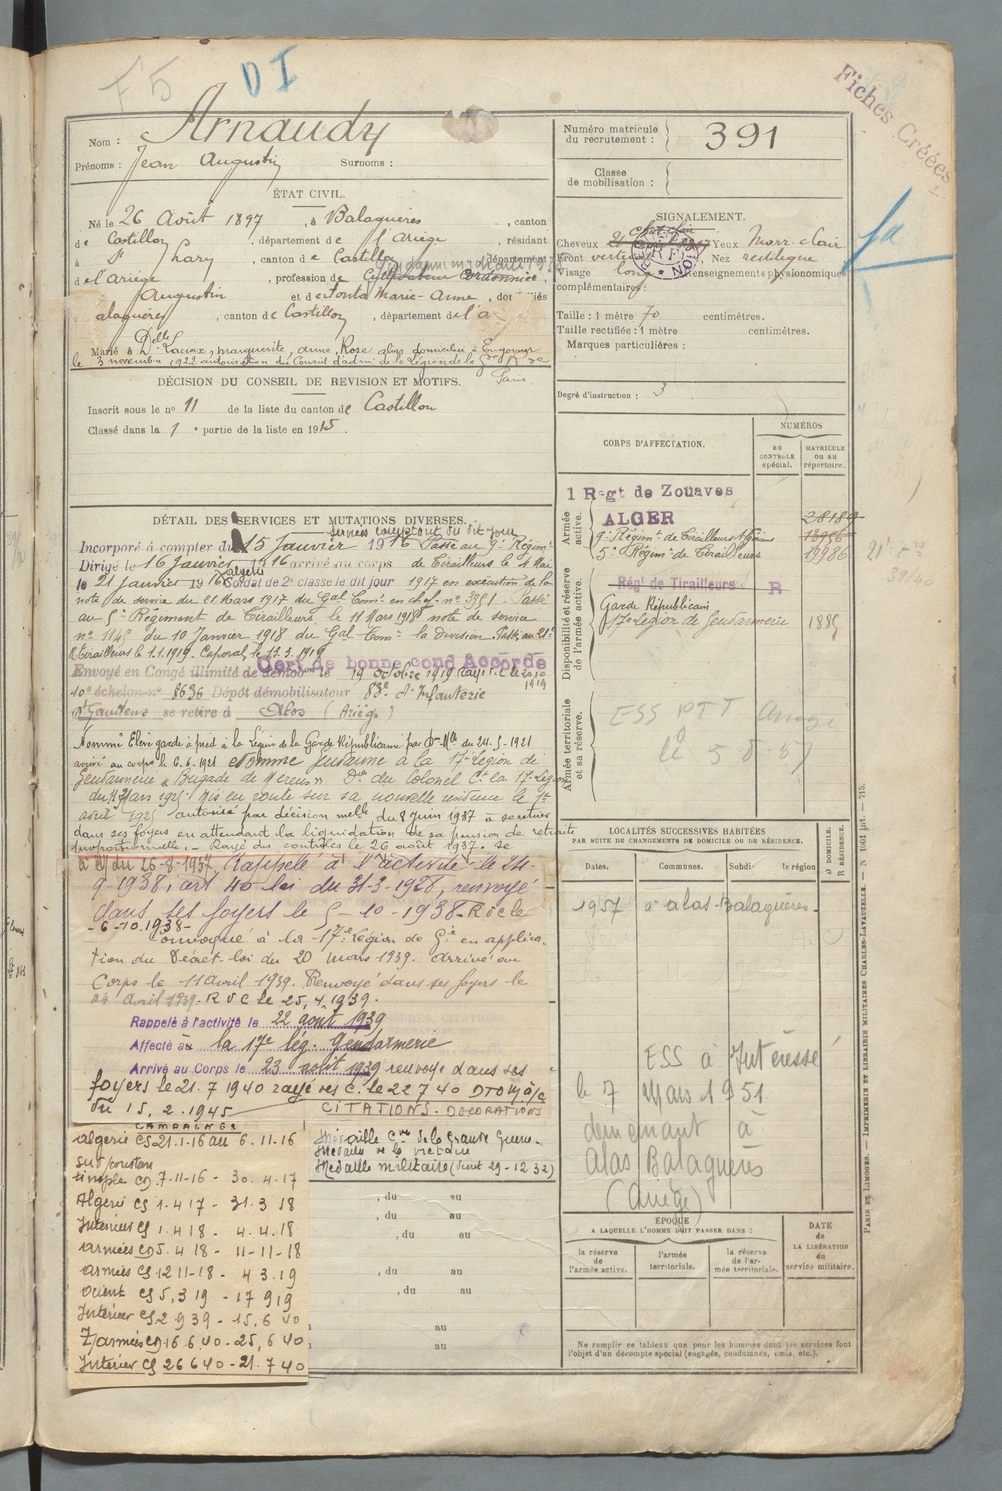 F5
DI
Fiches Créées
Nom : Arnaudy
Prénoms : Jean Augustin Surnoms :
Numéro matricule du recrutement : 391
Classe de mobilisation :
ÉTAT CIVIL.
Né le 26 Août 1897, à Balaguères, canton
de Castillon, département de l'Ariège, résidant
à St Lary, canton de Castillon, département
de l'ariège, profession de Cultivateur Cordonnier,
Augustin et de Fonta Marie-Anne, domiciliés
alaguères, canton de Castillon, département de l'a
Marié à Delle Lacaze, Marguerite, Anne, Rose alors domiciliée à
le 3 novembre 1922 autorisation du Conseil d'adm. de la Légion de la Gde Rne
Paris.
SIGNALEMENT.
Cheveux chat clair Yeux Marr. clair
Front vertical Nez rectiligne
Visage long Renseignements physionomiques
complémentaires :
Taille : 1 mètre 70 centimètres.
Taille rectifiée : 1 mètre centimètres.
Marques particulières :
Degré d'instruction : 3
DÉCISION DU CONSEIL DE REVISION ET MOTIFS.
Inscrit sous le no 11 de la liste du canton de Castillon
Classé dans la 1e partie de la liste en 1915.
CORPS D'AFFECTATION.
NUMÉROS
AU CONTROLE spécial.
MATRICULE OU AU répertoire.
Armée active.
1 Regt de Zouaves
ALGER 28189
9e Régimt de Tirailleurs Algériens
5e Régimt de Tirailleurs 19986
Disponibilité et réserve de l'armée active.
Régt de Tirailleurs R
Garde Républicain
17e Légion de Gendarmerie 1885
Armée territoriale et sa réserve.
ESS PTT
le 5
DÉTAIL DES SERVICES ET MUTATIONS DIVERSES.
services comptant du dit jour
Incorporé à compter du 15 Janvier 1916 Passé au 9e Régimt
Dirigé le 16 Janvier 1916 arrivé au corps de Tirailleurs le 4 Mai
le 21 Janvier 1916 Soldat de 2e classe le dit jour 1917 en exécution de la
note de service du 21 Mars 1917 du Gal Comt en chef no 3951. Passé
au 5e Régiment de Tirailleurs, le 11 Mars 1918 note de service
no 1145 du 10 Janvier 1918 du Gal Comt la division. Passé au 21e
R. Tirailleurs le 1.1.1919. Caporal, le 11.3.1919
Cert de bonne cond Accordé
Envoyé en Congé illimité de démobon le 19 octobre 1919
10e échelon no 8636 Dépôt démobilisateur 83e d'Infanterie
St Gaudens se retire à Alos (Ariège)
Nommé Elève garde à pied à la Légion de la Garde Républicaine par Don Mlle du 24-5-1921
arrivé au corps le 6.6.1921 Nommé gendarme à la 17e Légion de
Gendarmerie « Brigade de Mérens » Don du Colonel Ct la 17e Légion
du Mars 1925. Mis en route sur sa nouvelle résidence le 1er
avril 1925 autorisé par décision melle du 8 Juin 1937 à se retirer
dans ses foyers en attendant la liquidation de sa pension de retraite
proportionnelle. Rayé des contrôles le 26 août 1937. se
du 26-8-1937. Rappelé à l'activité le 24-
9-1938, art 40 loi du 31-3-1928, renvoyé
dans ses foyers le 5-10-1938. R d c le
-6-10.1938-
Convoqué à la 17e région de Gie en applica-
tion du Décret-loi du 20 mars 1939. arrivé au
Corps le 11 avril 1939. Renvoyé dans ses foyers le
24 Avril 1939. R D C le 25.4.1939.
Rappelé à l'activité le 22 août 1939
Affecté au la 17e lég. Gendarmerie
Arrivé au Corps le 23 août 1939 renvoyé dans ses
foyers le 21.7.1940 rayé des c. le 22 7 40
du 15.2.1945
CAMPAGNES
Algérie CS 21.1.16 au 6.11.16
sud/constan
simple CD 7.11-16 - 30.4.17
Algérie CS 1.4 17 - 31.3 18
Intérieur CS 1.4 18 - 4.4.18
armées CD 5.4 18 - 11-11-18
armées CS 12 11-18 - 4 3.19
Orient CS 5,3 19 - 17 9 19
Intérieur CS 2 9 39 - 15,6 40
Z/armées CD 16 6 40 - 25,6 40
Intérieur CS 26 6 40 - 21.7 40
CITATIONS. DECORATIONS
Médaille Cve de la Grande Guerre.
Médaille de la victoire
Médaille militaire (Décret 29-12 32)
, du au
, du au
, du au
, du au
, du au
au
au
LOCALITÉS SUCCESSIVES HABITÉES
PAR SUITE DE CHANGEMENTS DE DOMICILE OU DE RÉSIDENCE.
Dates. Communes. Subdi de région
D DOMICILE. R RÉSIDENCE.
1937 à alas-Balaguères.
ESS à Intéressé
le 7 Mars 1951
demeurant à
Alas Balaguères
(Ariège)
ÉPOQUE
A LAQUELLE L'HOMME DOIT PASSER DANS :
la réserve de l'armée active.
l'armée territoriale.
la réserve de l'armée territoriale.
DATE de LA LIBÉRATION du service militaire.
Ne remplir ce tableau que pour les hommes dont les services font
l'objet d'un décompte spécial (engagés, condamnés, omis, etc.).
PARIS ET LIMOGES. — IMPRIMERIE ET LIBRAIRIE MILITAIRES CHARLES-LAVAUZELLE.